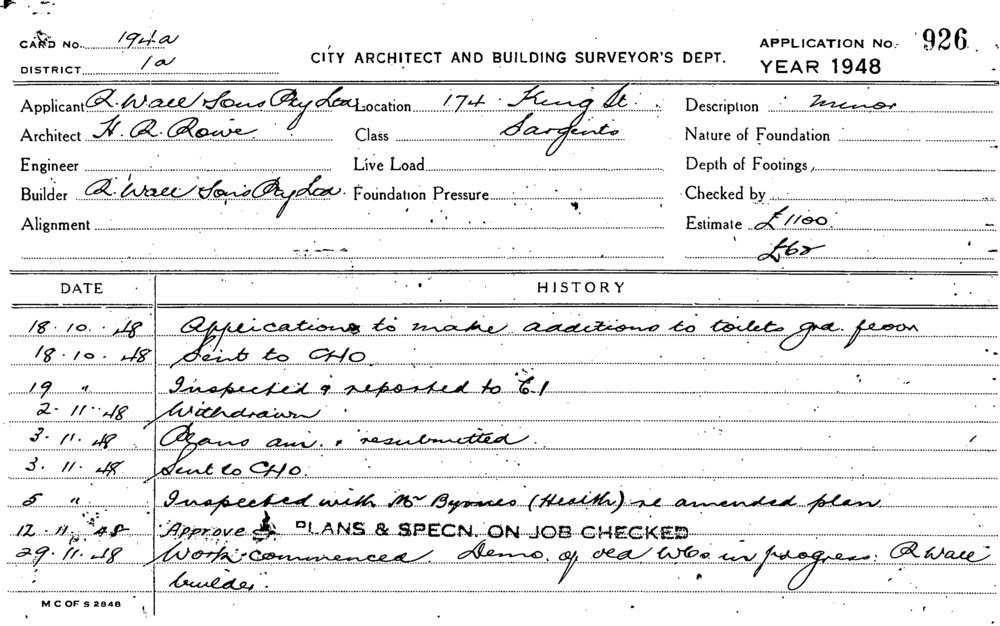 CARD NO. 194a
DISTRICT 1a
CITY ARCHITECT AND BUILDING SURVEYOR'S DEPT.
APPLICATION NO. 926
YEAR 1948
Applicant R. Wall Sons Pty Ltd Location 174 King St. Description minor
Architect H. R. Rowe Class Sargents Nature of Foundation
Engineer Live Load Depth of Footings
Builder R. Wall Sons Pty Ltd. Foundation Pressure Checked by
Alignment Estimate £1100
£62
DATE HISTORY
18.10.48 Application to make additions to toilets grd. floor
18.10.48 Sent to CHO
19 " Inspected & reported to E.1
2.11.48 Withdrawn
3.11.48 Plans am. & resubmitted.
3.11.48 Sent to CHO.
5 " Inspected with Mr Byrnes (Health) re amended plan
12.11.48 Approve PLANS & SPECN. ON JOB CHECKED
29.11.48 Work commenced. Demo. of old WCs in progress. R Wall
builder.
M C OF S 2848